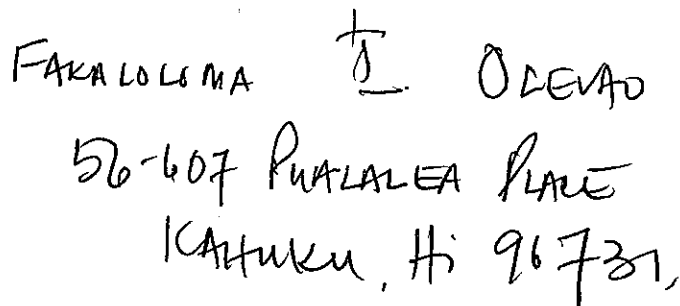 FAKALOLOMA I. OLEVAO
56-607 PUALALEA PLACE
KAHUKU, Hi 96731,